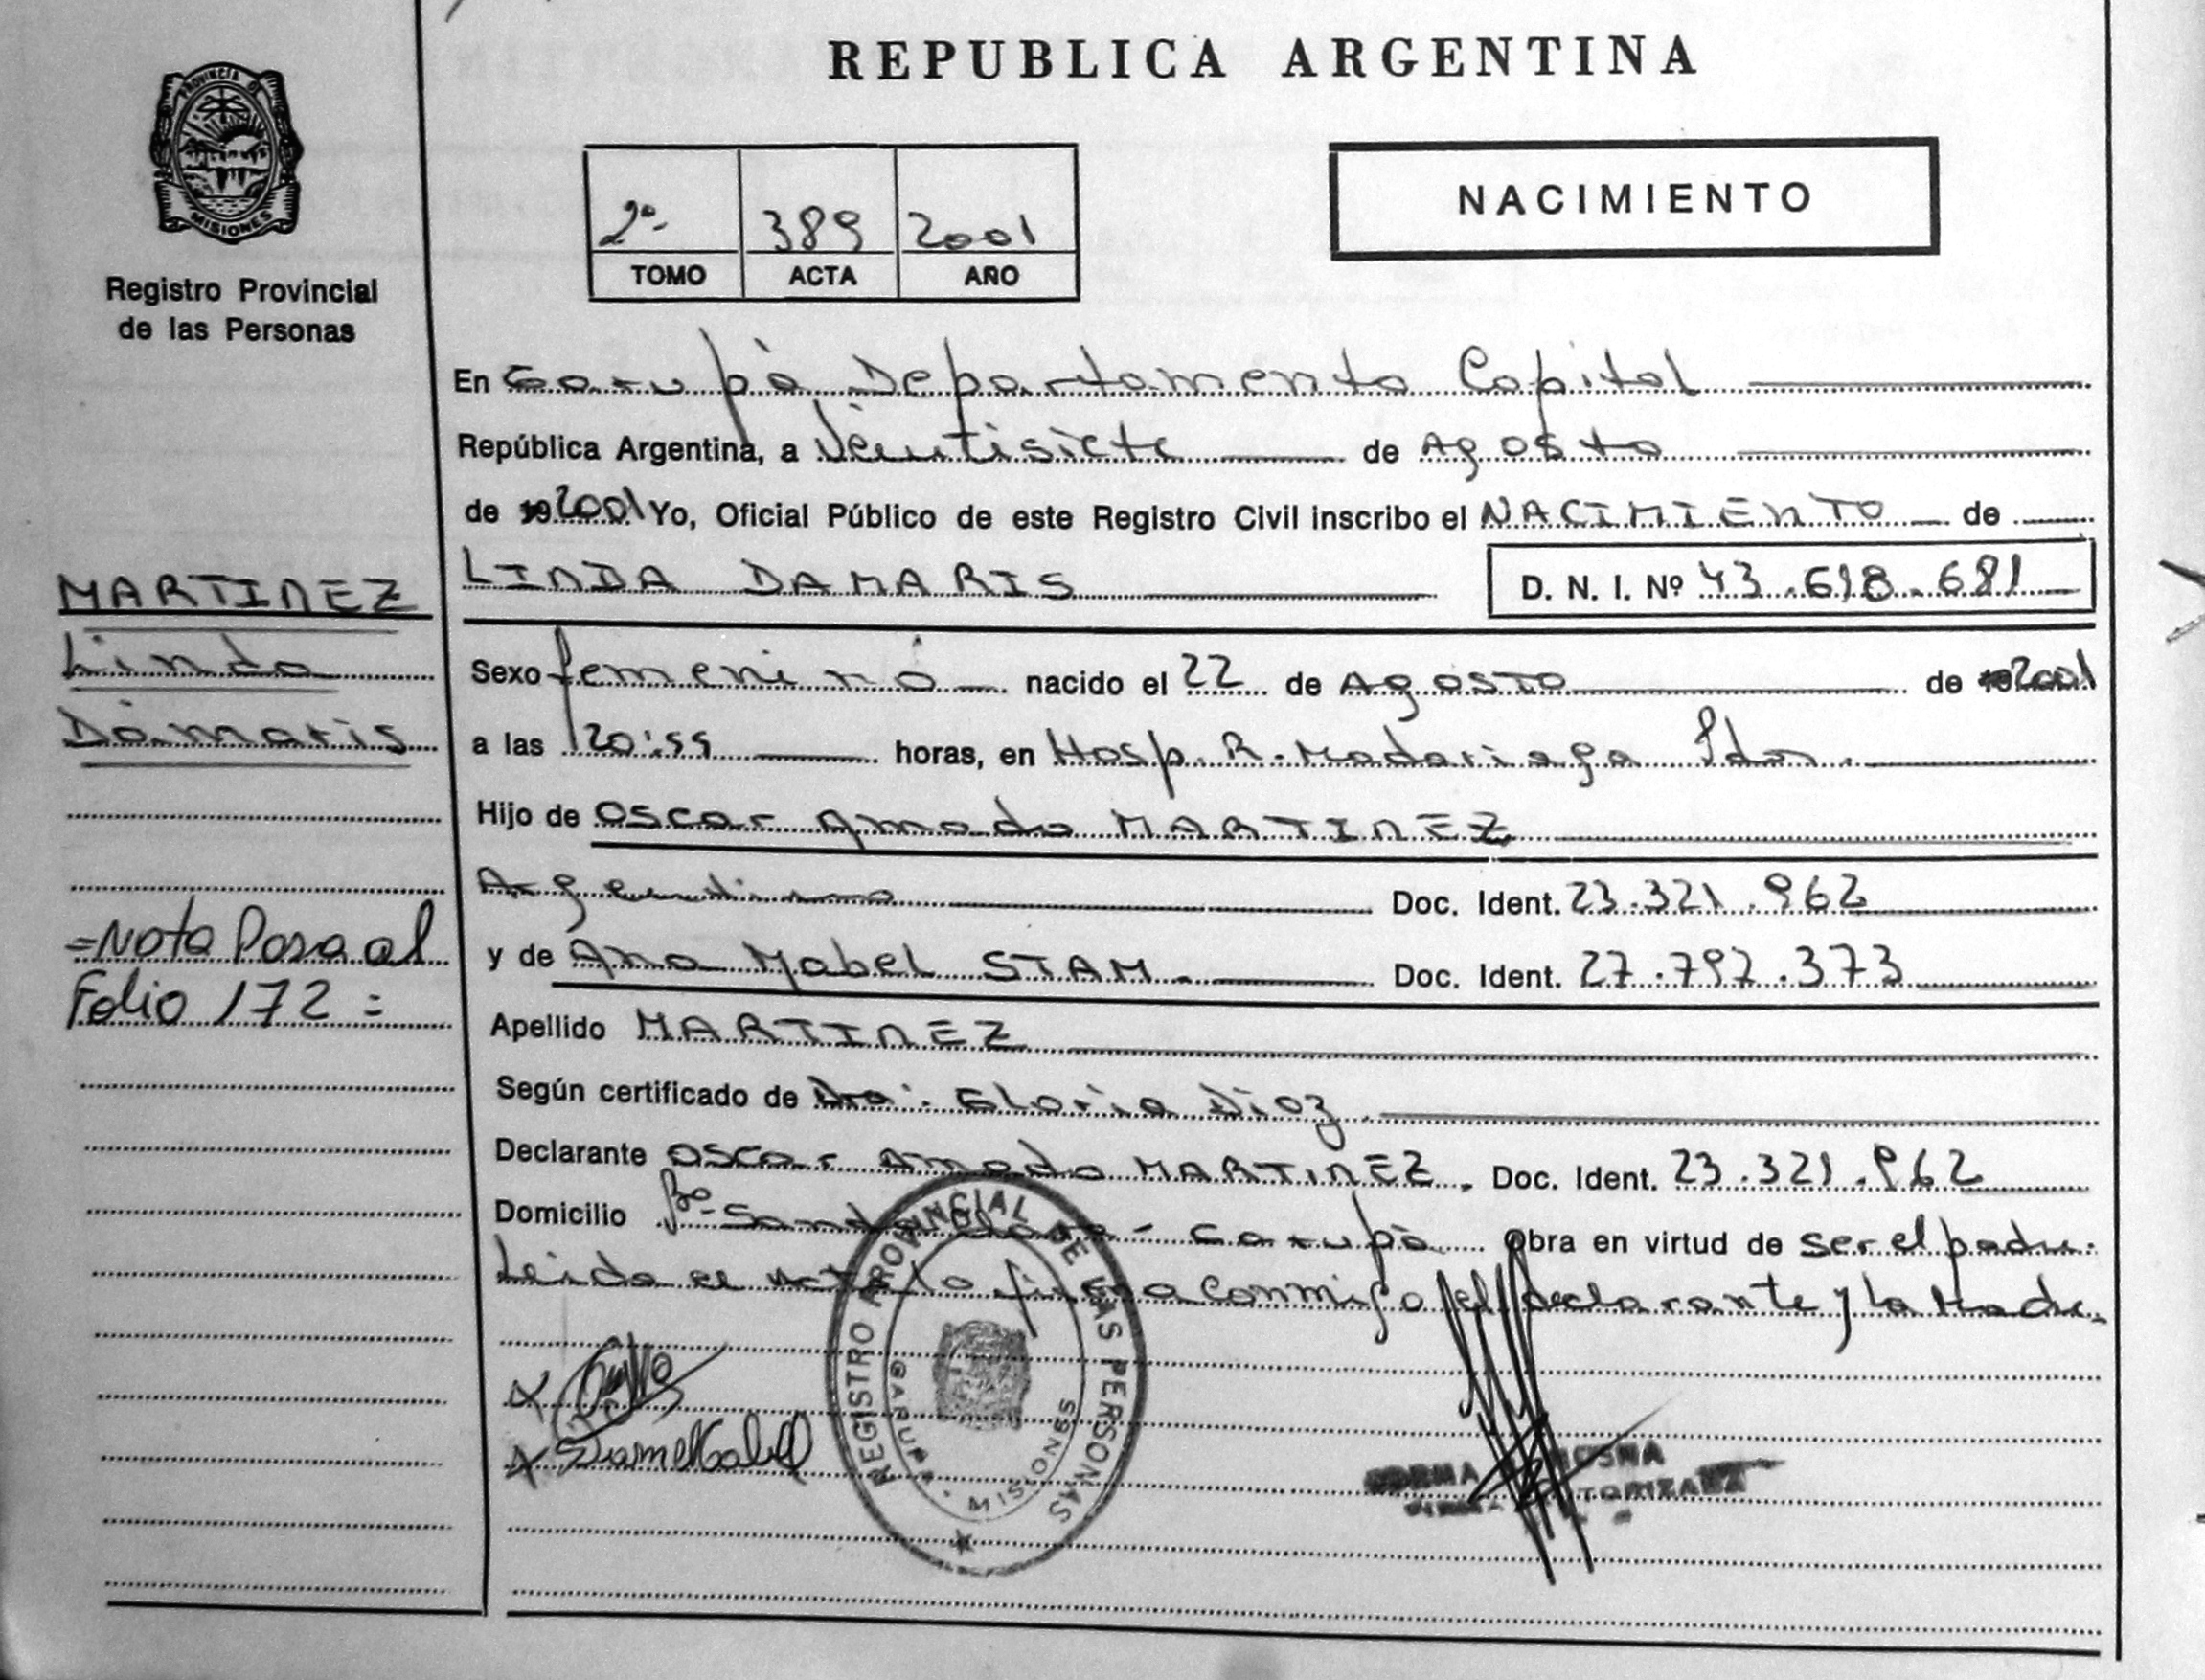 REPUBLICA ARGENTINA
PROVINCIA DE
MISIONES
Registro Provincial
de las Personas
2º- 389 2001
TOMO ACTA AÑO
NACIMIENTO
En Garupà Departamento Capital
República Argentina, a Veintisiete de Agosto
de 19 2001 Yo, Oficial Público de este Registro Civil inscribo el NACIMIENTO de
LINDA DAMARIS D. N. I. Nº 43.618.681
MARTINEZ
Linda
Dámaris
Sexo femenino nacido el 22 de Agosto de 19 2001
a las 20:55 horas, en Hosp. R. Madariaga Pdas.
Hijo de Oscar Amado MARTINEZ
Argentino Doc. Ident. 23.321.962
y de Ana Mabel STAM. Doc. Ident. 27.797.373
=Nota Pasa al
Folio 172=
Apellido MARTINEZ
Según certificado de Dra. Gloria Diaz.
Declarante Oscar Amado MARTINEZ. Doc. Ident. 23.321.962
Domicilio Bº- Santa - Garupà Obra en virtud de ser el padre.
Leida el acta la firma conmigo el declarante y la Madre.
REGISTRO PROVINCIAL DE LAS PERSONAS
GARUPA - MISIONES
Mabel
NORMA
AUTORIZADA